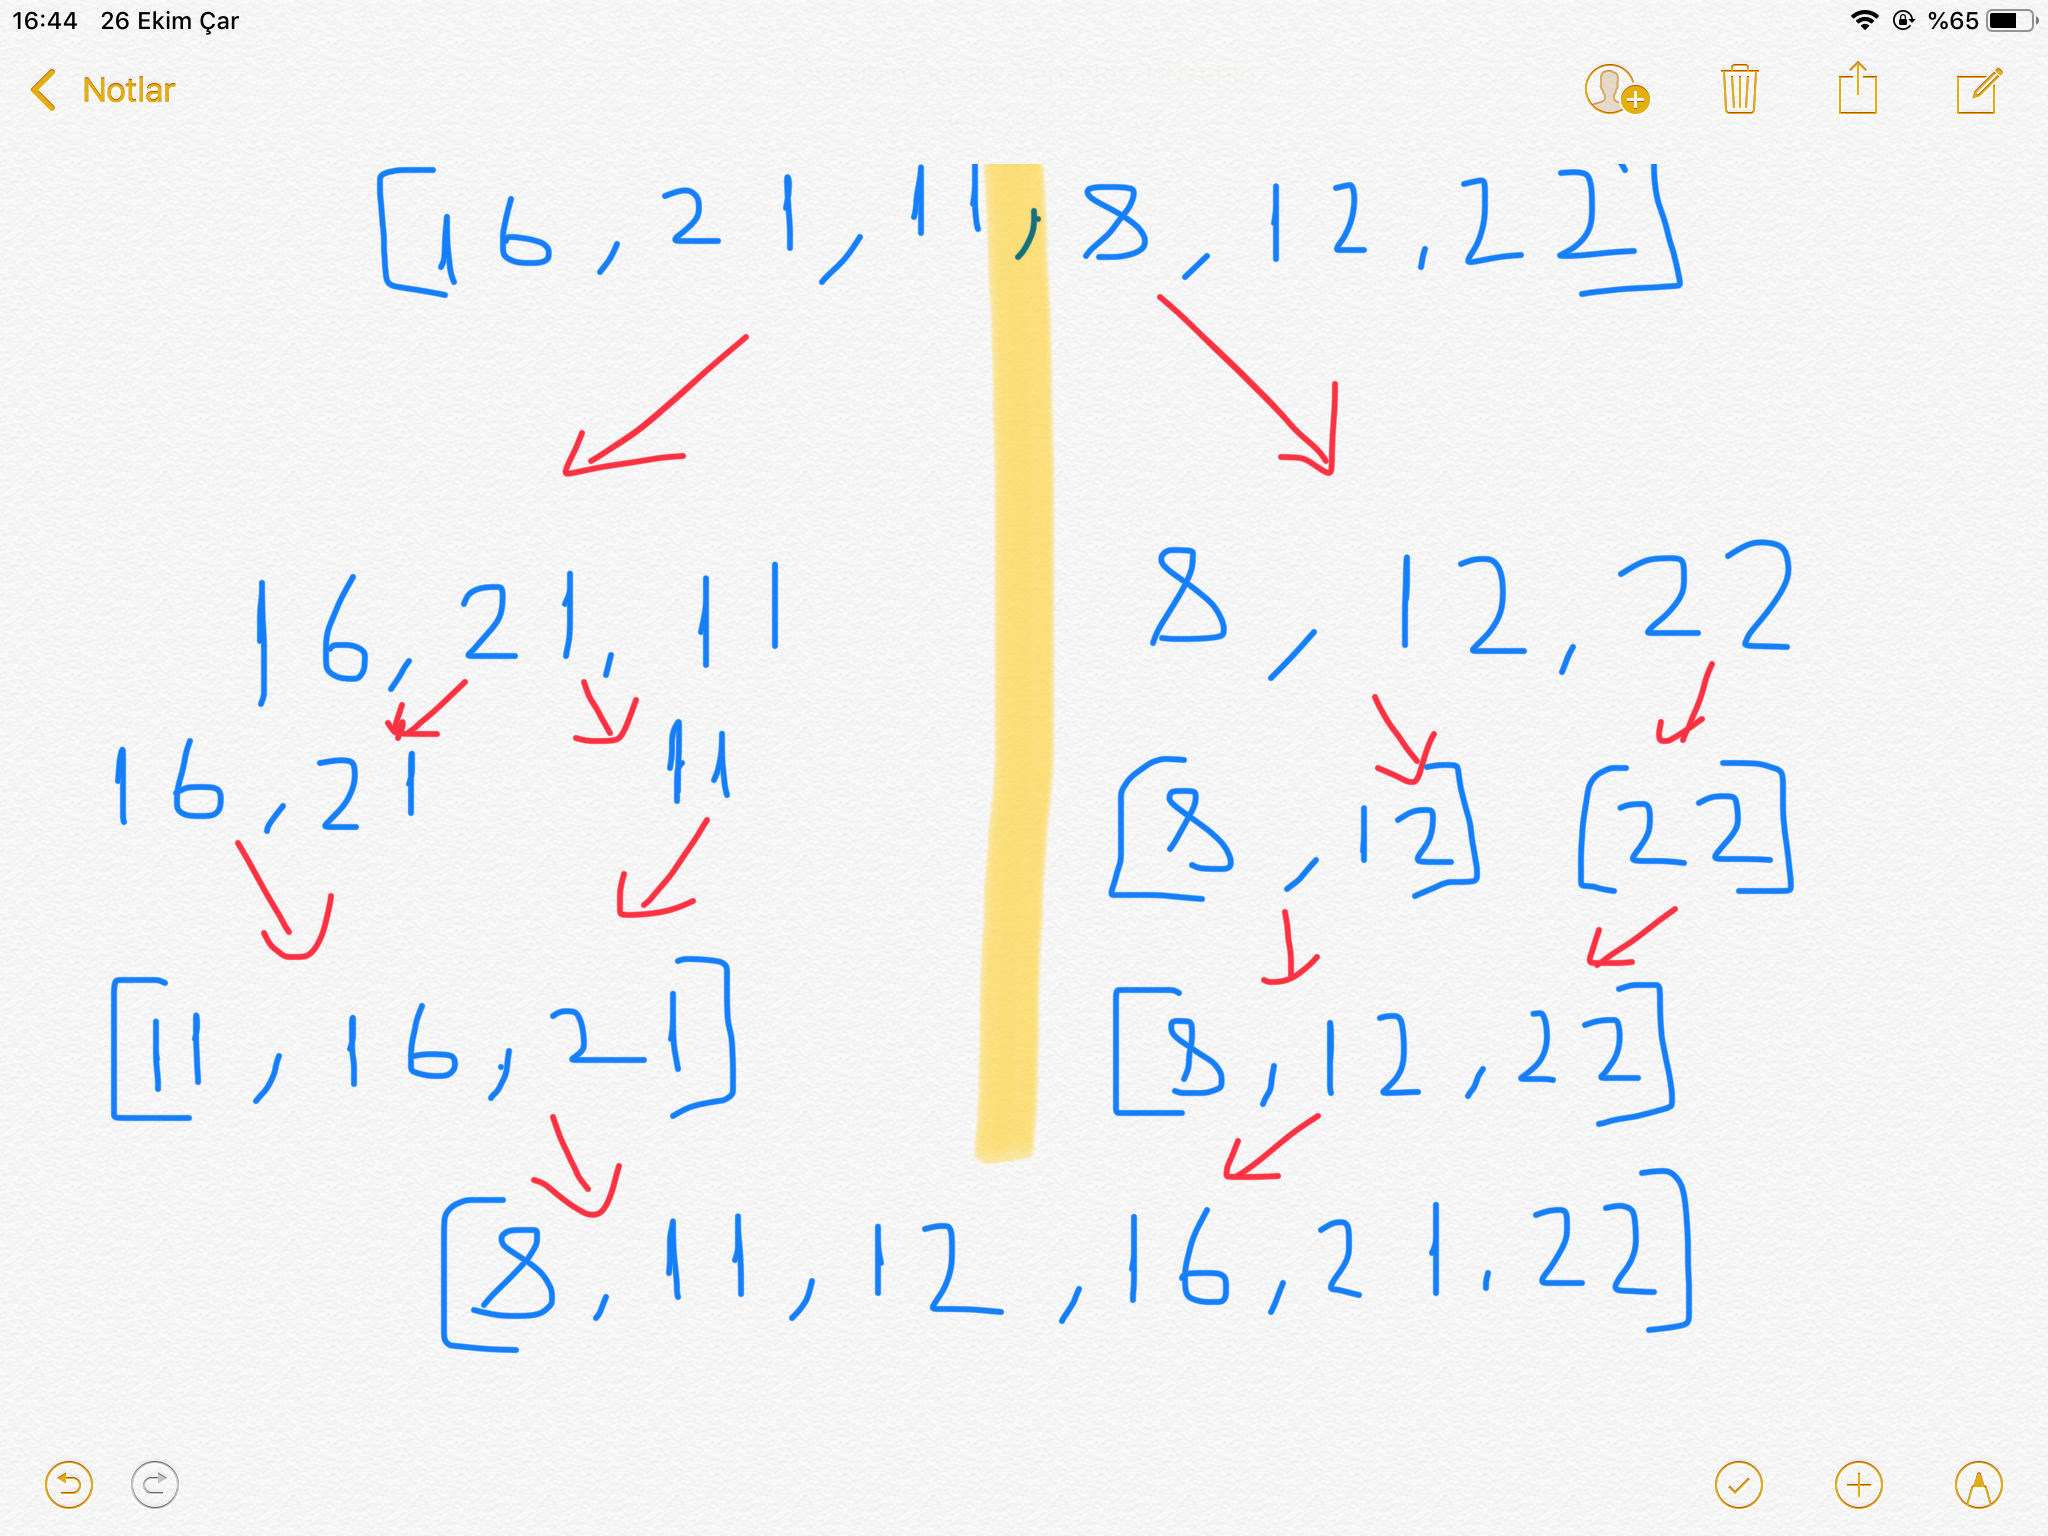 16:44 26 Ekim Çar %65
Notlar
[16, 21, 11, 8, 12, 22]
16, 21, 11 8, 12, 22
16, 21 11 [8, 12] [22]
[11, 16, 21] [8, 12, 22]
[8, 11, 12, 16, 21, 22]